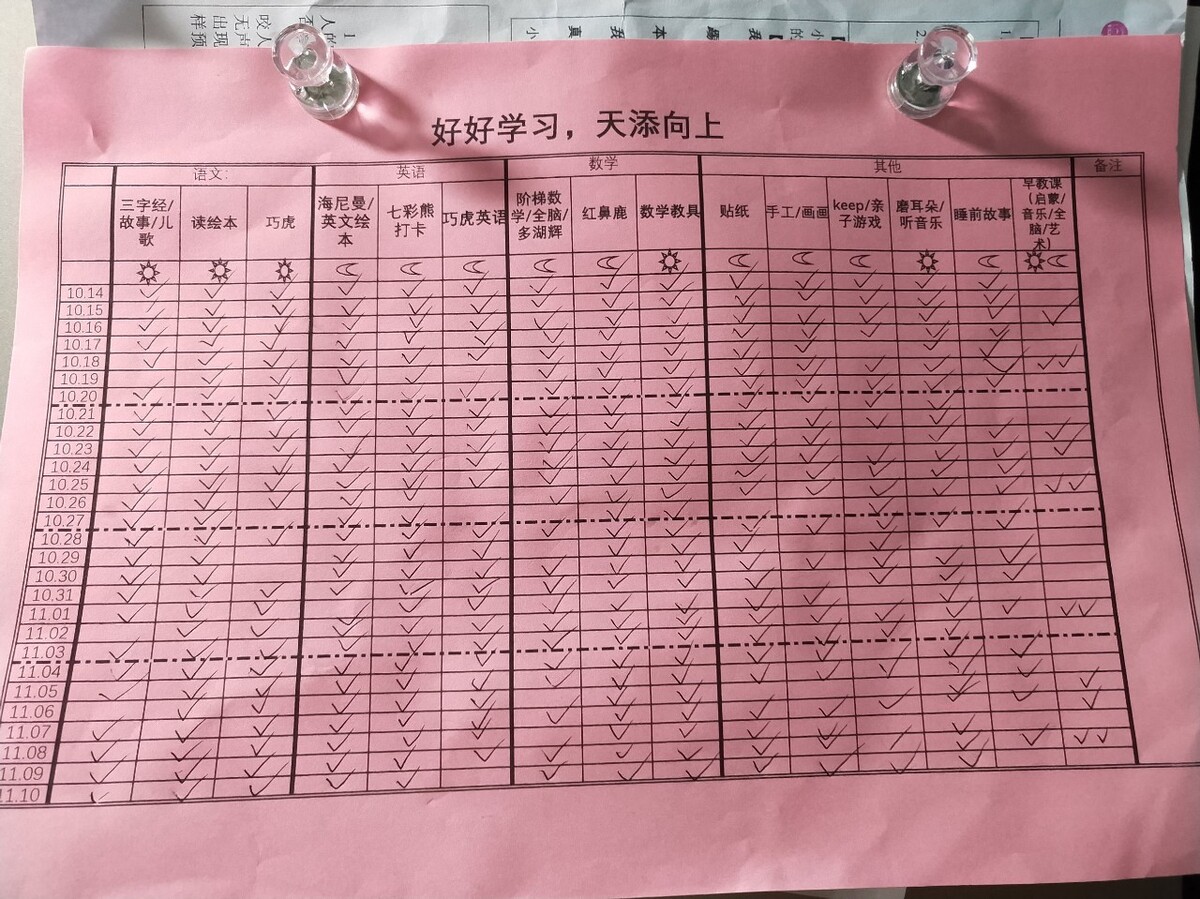 好好学习，天添向上
语文: 英语 数学 其他 备注
三字经/故事/儿歌 读绘本 巧虎 海尼曼/英文绘本 七彩熊打卡 巧虎英语 阶梯数学/全脑/多湖辉 红鼻鹿 数学教具 贴纸 手工/画画 keep/亲子游戏 磨耳朵/听音乐 睡前故事 早教课(启蒙/音乐/全脑/艺术)
10.14
10.15
10.16
10.17
10.18
10.19
10.20
10.21
10.22
10.23
10.24
10.25
10.26
10.27
10.28
10.29
10.30
10.31
11.01
11.02
11.03
11.04
11.05
11.06
11.07
11.08
11.09
11.10